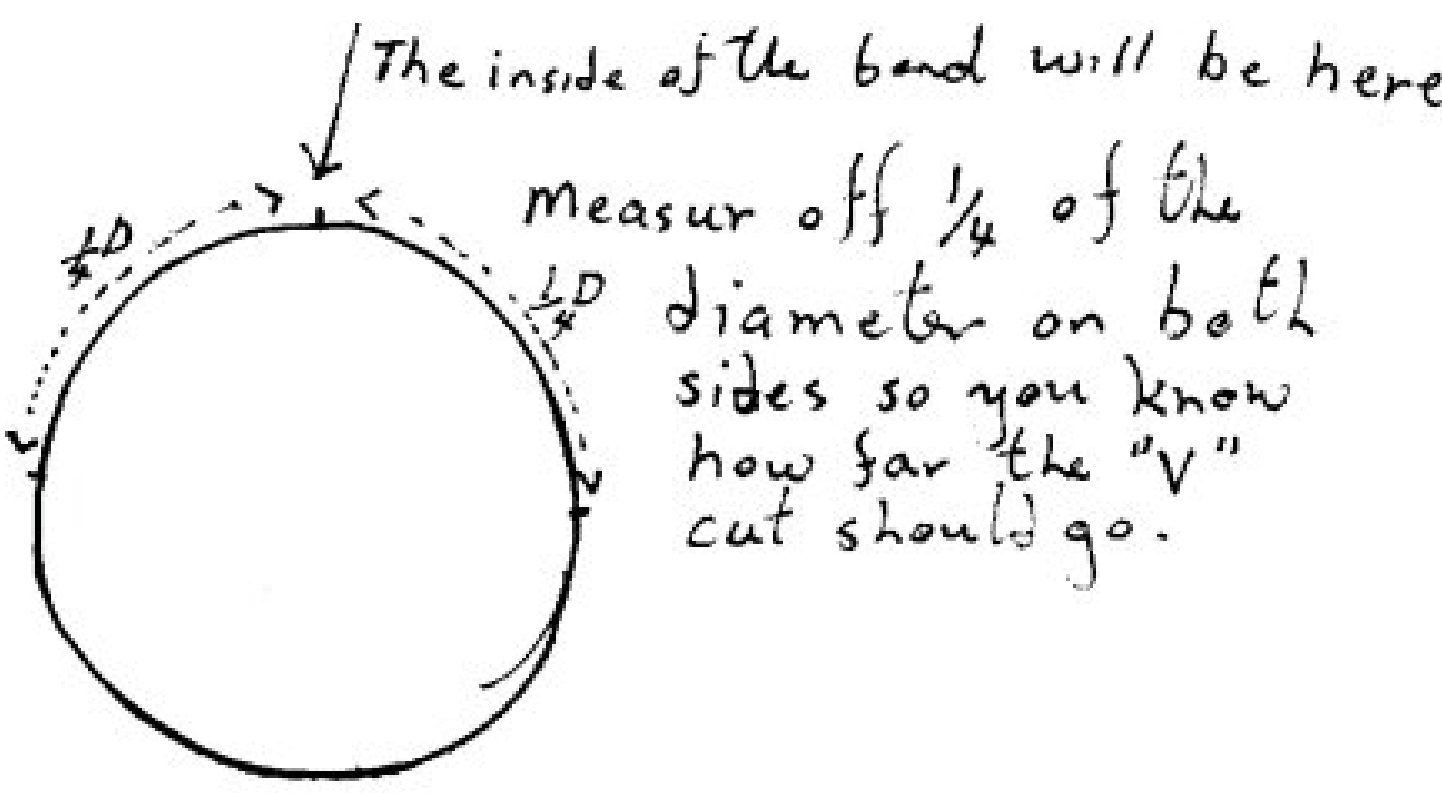 The inside of the bend will be here
Measur off 1/4 of the
1/4 D
1/4 D
diameter on both
sides so you know
how far the "V"
cut should go.